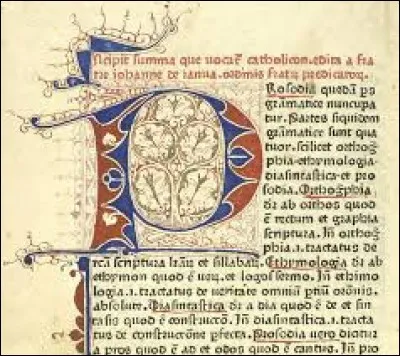 ncipit summa que vocat̃ catholicon. edita a fra
tre iohanne de ianua. ordinis fratrũ predicatorꝝ.
Rosodia quedã ps
gramatice nuncupa
tur. Partes siquidem
grãmatice sunt qua
tuor. scilicet orthog̃
phia · ethymologia ·
diasintastica · et pro
sodia. Orthog̃phia
dr̃ ab orthos quod
ẽ rectum et graphia
scriptura. Jn̄ orthog̃
phia .i. tractatus de
recta scriptura lrãꝝ et sillabaꝝ. Ethymologia dr̃ ab
ethymon quod ẽ veꝝ. et logos sermo. Jn̄ ethimo
logia .i. tractatus de veritate omniũ ptiũ or̃onis.
absolute. Diasintastica dr̃ a dia quod ẽ de et sin
tasis quod ẽ constructõ. Jn̄ diasintastica .i. tracta
tus de constructõne pfecta. Prosodia vero dicitur
a pros quod ẽ ad et odos quod ẽ cantus. Jn̄ pro